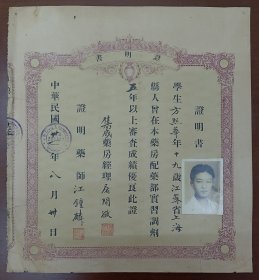 書明證
證明書
學生方烈華年十九歲江蘇省上海
縣人曾在本藥房配藥部實習調劑
五年以上審查成績優良此證
集成藥房經理屠開徵
證明藥師江鍾麟
中華民國
年八月卅日